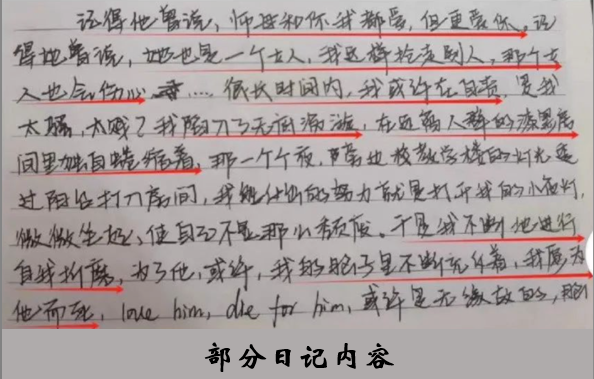 记得他曾说，师母和你，我都爱，但更爱你，记
得她曾说，她也是一个女人，我这样抢走别人，那个女
人也会伤心……很长时间内，我或许在自责，是我
太骚，太贱了我陷入了无底漩涡，在这窄人群的漆黑房
间里独自蜷缩着，那一个个夜，隔着也校教学楼的灯光透
过阳台打入房间，我能付出的努力就是打开我的小夜灯，
微微坐起，使自己不显那么颓废。于是我不断地进行
自我折磨，为了他，或许，我的脑子里不断充斥着，我愿为
他而死，love him, die for him, 或许是无缘故的，
部分日记内容